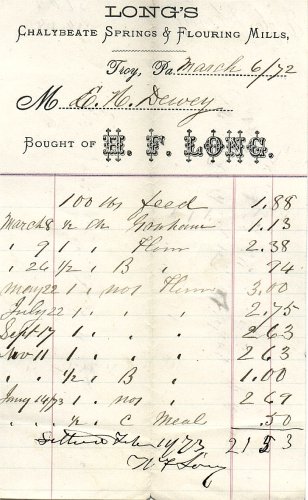 LONG'S
CHALYBEATE SPRINGS & FLOURING MILLS,
Troy, Pa. March 6/72
M E. H. Dewey
BOUGHT OF H. F. LONG.
100 lbs feed 1.88
March 8 ½ Graham 1.13
" 9 1 " Flour 2.38
" 26 1/2 " B " .94
May 22 1 " Flour 3.00
July 22 1 " " 2.75
Sept 17 1 " " 2.63
Nov 11 1 " " 2.63
" " 1/2 " B " 1.00
1 " " 2.69
" " " C Meal .50
Settled Feb 1973 21 53
H F Long